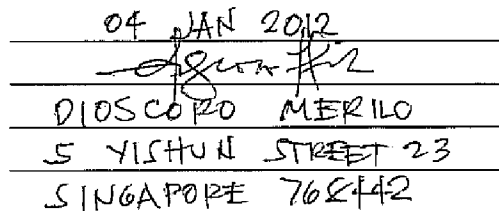 04 JAN 2012
DIOSCORO MERILO
5 YISHUN STREET 23
SINGAPORE 768442